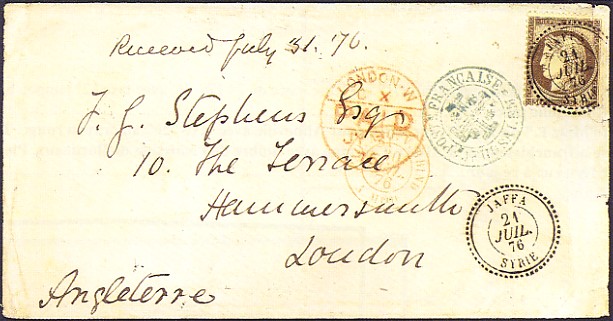 Received July 31. '76.
JAFFA
21
JUIL.
76
SYRIE
LONDON·W
PAID
76
F. G. Stephens Esqr
10. The Terrace
Hammersmith
London
Angleterre
JAFFA
21
JUIL.
76
SYRIE